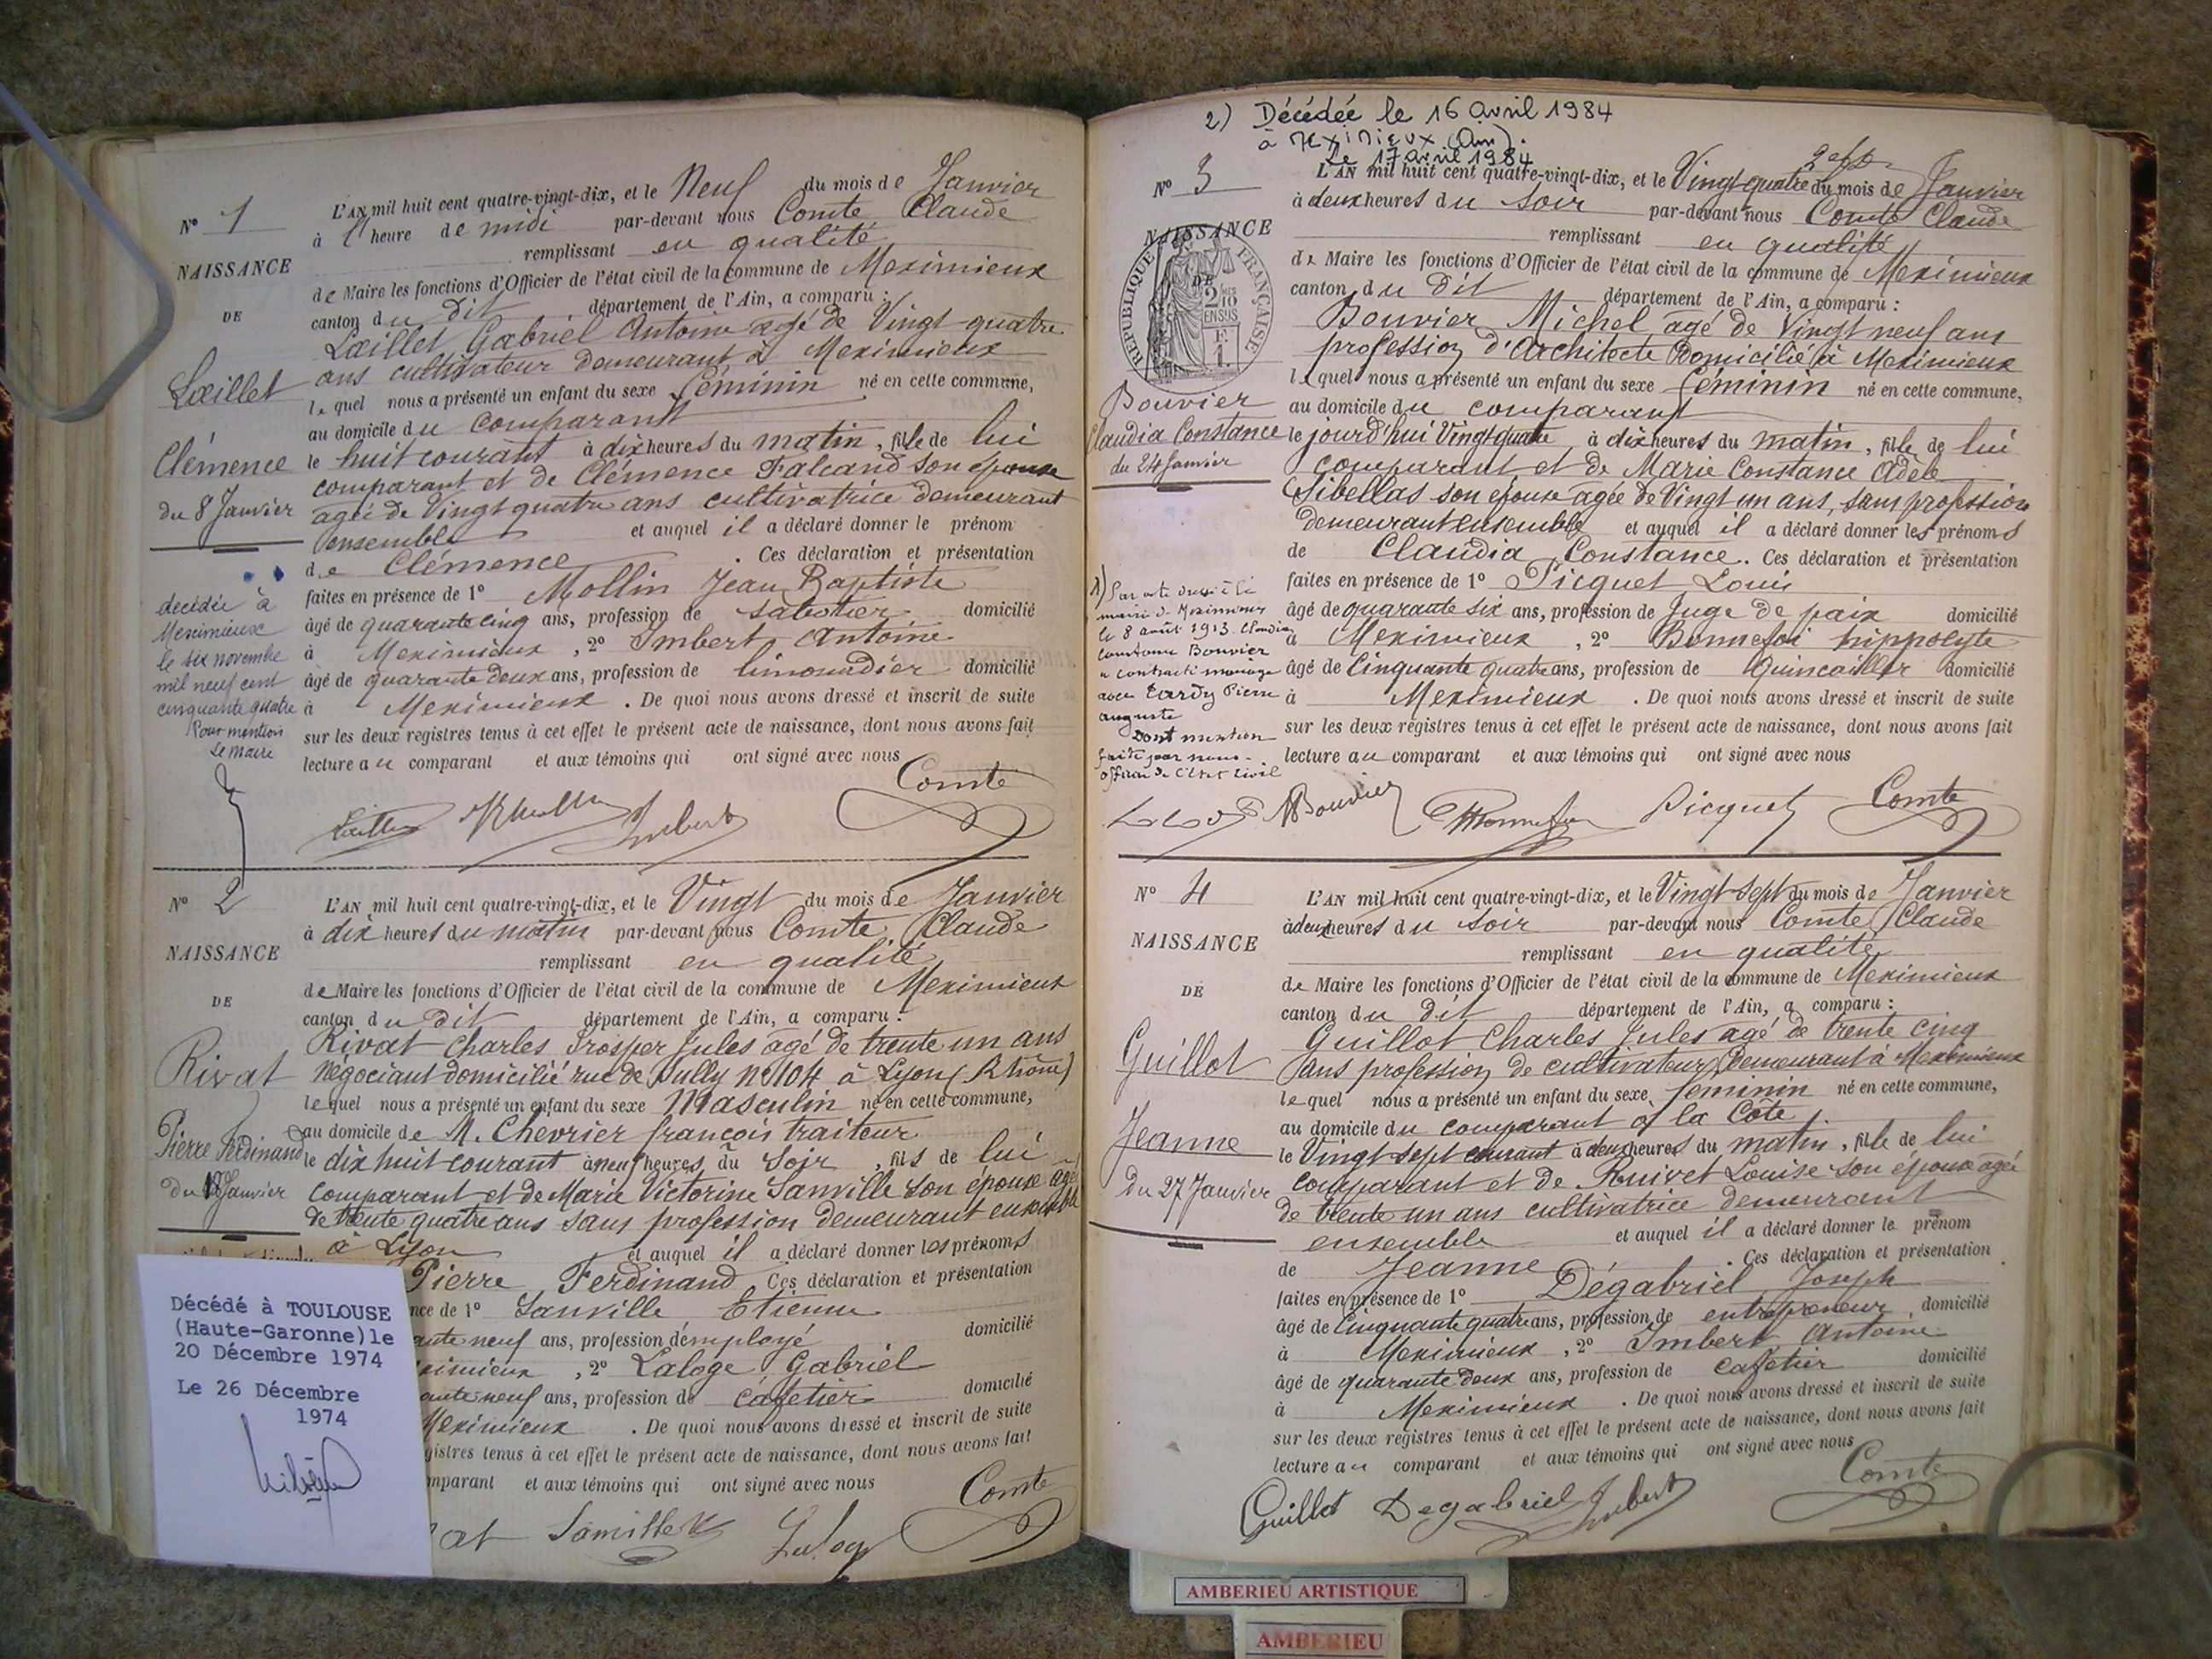 N° 1
NAISSANCE
DE
Lœillet
Clémence
du 8 Janvier
décédée à
Meximieux
le six novembre
mil neuf cent
cinquante quatre
Pour mention
Le Maire
L'AN mil huit cent quatre-vingt-dix, et le Neuf du mois de Janvier
à 1 heure de midi par-devant nous Comte Claude
remplissant en qualité
de Maire les fonctions d'Officier de l'état civil de la commune de Meximieux
canton du dit département de l'Ain, a comparu :
Lœillet Gabriel Antoine agé de Vingt-quatre
ans cultivateur demeurant à Meximieux
lequel nous a présenté un enfant du sexe féminin né en cette commune,
au domicile du comparant
le huit courant à dix heures du matin, fille de lui
comparant et de Clémence Falcand son épouse
agée de Vingt quatre ans cultivatrice demeurant
ensemble et auquel il a déclaré donner le prénom
de Clémence . Ces déclaration et présentation
faites en présence de 1° Mollin Jean Baptiste
âgé de quarante cinq ans, profession de sabotier domicilié
à Meximieux , 2° Imbert Antoine
âgé de quarante deux ans, profession de limonadier domicilié
à Meximieux . De quoi nous avons dressé et inscrit de suite
sur les deux registres tenus à cet effet le présent acte de naissance, dont nous avons fait
lecture au comparant et aux témoins qui ont signé avec nous
Imbert Comte
N° 2
NAISSANCE
DE
Rivat
Pierre Ferdinand
du 18 Janvier
L'AN mil huit cent quatre-vingt-dix, et le Vingt du mois de Janvier
à dix heures du matin par-devant nous Comte Claude
remplissant en qualité
de Maire les fonctions d'Officier de l'état civil de la commune de Meximieux
canton du dit département de l'Ain, a comparu :
Rivat Charles Prosper Jules agé de trente un ans
négociant domicilié rue de Sully n° 104 à Lyon (Rhône)
lequel nous a présenté un enfant du sexe Masculin né en cette commune,
au domicile de M. Chevrier françois traiteur
le dix huit courant à neuf heures du soir , fils de lui
comparant et de Marie Victorine Sanville son épouse agée
de trente quatre ans sans profession demeurant ensemble
à Lyon et auquel il a déclaré donner les prénoms
Pierre Ferdinand Ces déclaration et présentation
nce de 1° Sanville Etienne
ante neuf ans, profession d'employé domicilié
ximieux , 2° Laloge Gabriel
ante neuf ans, profession de cafetier domicilié
Meximieux . De quoi nous avons dressé et inscrit de suite
gistres tenus à cet effet le présent acte de naissance, dont nous avons fait
mparant et aux témoins qui ont signé avec nous
at Sanville Comte
Décédé à TOULOUSE
(Haute-Garonne) le
20 Décembre 1974
Le 26 Décembre
1974
2) Décédée le 16 avril 1984
à Meximieux (Ain).
Le 17 avril 1984
N° 3
NAISSANCE
DE
RÉPUBLIQUE FRANÇAISE
2/10
EN SUS
F. 1.
Bouvier
Claudia Constance
du 24 Janvier
1) Par acte dressé à la
mairie de Meximieux
le 8 août 1913. Claudia
Constance Bouvier
a contracté mariage
avec Tardy Pierre
Auguste
Dont mention
faite par nous
officier de l'Etat civil
L'AN mil huit cent quatre-vingt-dix, et le Vingt quatre du mois de Janvier
à deux heures du soir par-devant nous Comte Claude
remplissant en qualité
de Maire les fonctions d'Officier de l'état civil de la commune de Meximieux
canton du dit département de l'Ain, a comparu :
Bouvier Michel agé de Vingt neuf ans
profession d'Architecte domicilié à Meximieux
lequel nous a présenté un enfant du sexe féminin né en cette commune,
au domicile du comparant
le jourd'hui Vingt quatre à dix heures du matin, fille de lui
comparant et de Marie Constance Adèle
Sibellas son épouse agée de Vingt un ans, sans profession
demeurant ensemble et auquel il a déclaré donner les prénoms
de Claudia Constance. Ces déclaration et présentation
faites en présence de 1° Picquet Louis
âgé de quarante six ans, profession de Juge de paix domicilié
à Meximieux , 2° Bonnefoi hippolyte
âgé de Cinquante quatre ans, profession de Quincailler domicilié
à Meximieux . De quoi nous avons dressé et inscrit de suite
sur les deux registres tenus à cet effet le présent acte de naissance, dont nous avons fait
lecture au comparant et aux témoins qui ont signé avec nous
Bouvier Picquet Comte
N° 4
NAISSANCE
DE
Guillot
Jeanne
du 27 Janvier
L'AN mil huit cent quatre-vingt-dix, et le Vingt sept du mois de Janvier
à deux heures du soir par-devant nous Comte Claude
remplissant en qualité
de Maire les fonctions d'Officier de l'état civil de la commune de Meximieux
canton du dit département de l'Ain, a comparu :
Guillot Charles Jules agé de trente cinq
ans profession de cultivateur demeurant à Meximieux
lequel nous a présenté un enfant du sexe féminin né en cette commune,
au domicile du comparant à la Côte
le Vingt sept courant à deux heures du matin, fille de lui
comparant et de Ruivet Louise son épouse agée
de trente un ans cultivatrice demeurant
ensemble et auquel il a déclaré donner le prénom
de Jeanne . Ces déclaration et présentation
faites en présence de 1° Dégabriel Joseph
âgé de Cinquante quatre ans, profession de entrepreneur domicilié
à Meximieux , 2° Imbert Antoine
âgé de quarante deux ans, profession de cafetier domicilié
à Meximieux . De quoi nous avons dressé et inscrit de suite
sur les deux registres tenus à cet effet le présent acte de naissance, dont nous avons fait
lecture au comparant et aux témoins qui ont signé avec nous
Guillot Degabriel Imbert Comte
AMBERIEU ARTISTIQUE
AMBERIEU